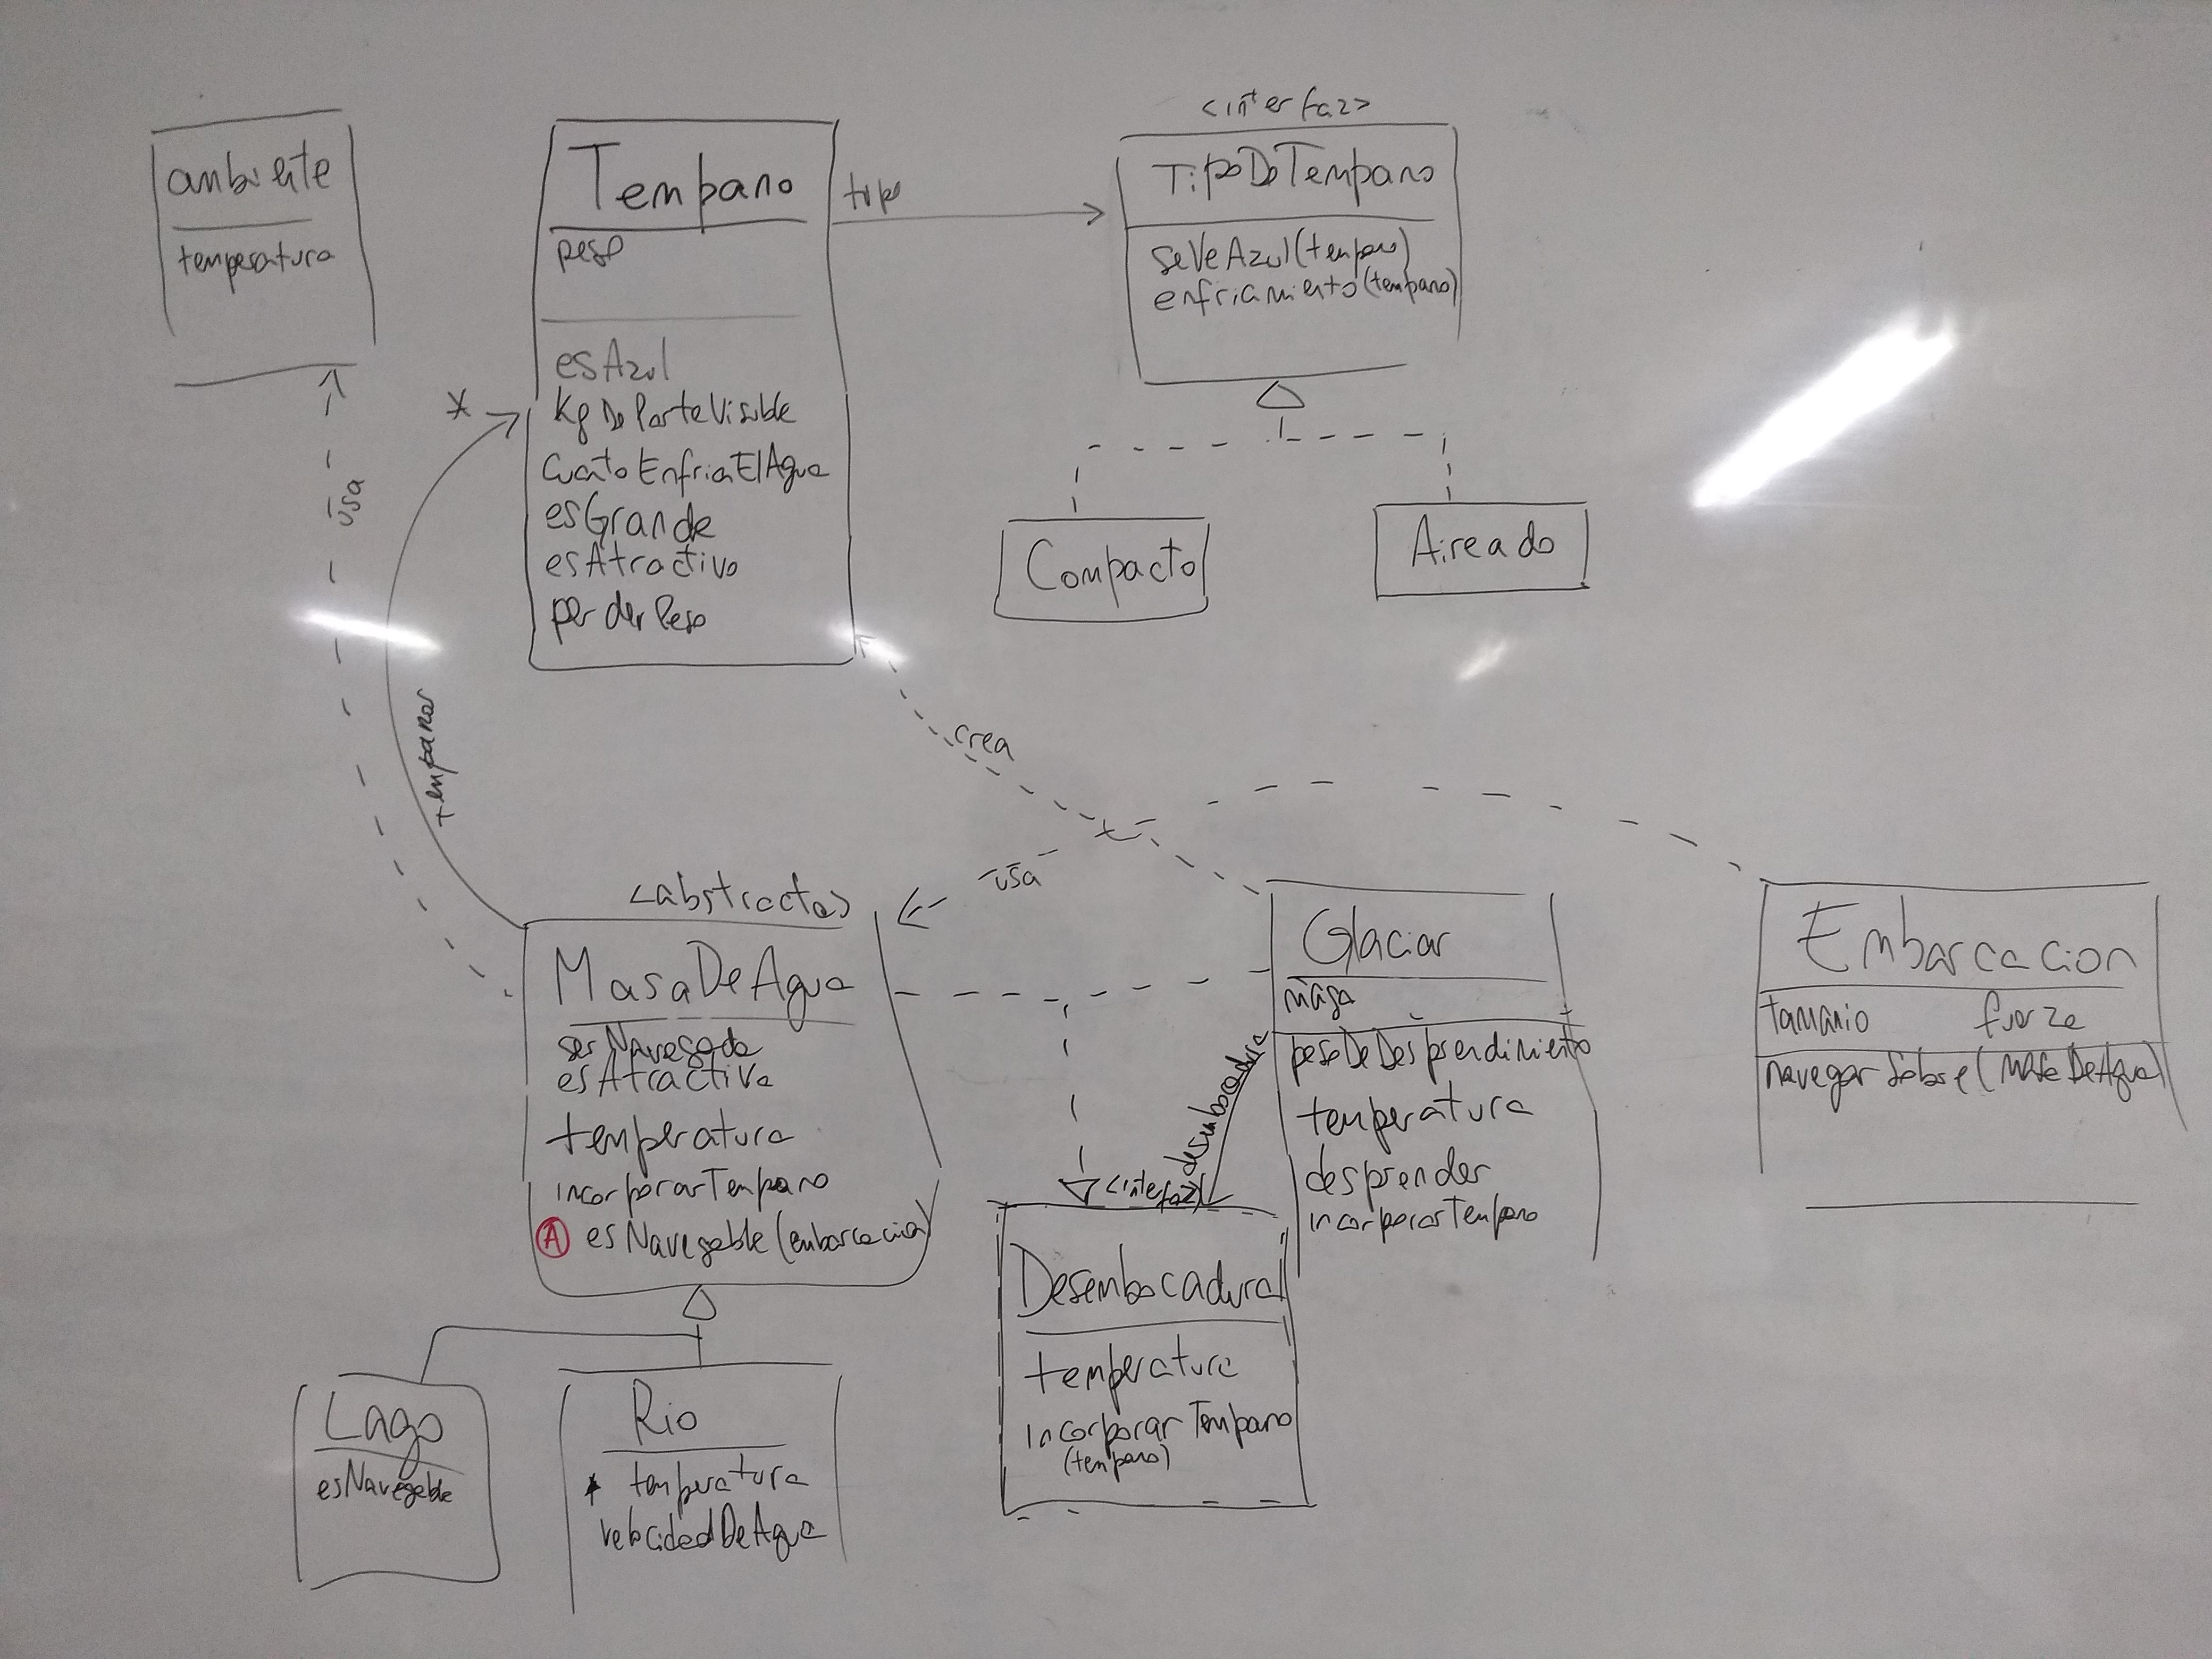 ambiente
temperatura
usa
Tempano
peso
esAzul
KgDeParteVisible
CuantoEnfriaElAgua
esGrande
esAtractivo
perderPeso
tipo
<interfaz>
TipoDeTempano
seVeAzul(tempano)
enfriamiento(tempano)
Compacto
Aireado
*
tempanos
crea
usa
<abstracta>
MasaDeAgua
serNavegada
esAtractiva
temperatura
incorporarTempano
A esNavegable(embarcacion)
Glaciar
masa
pesoDeDesprendimiento
temperatura
desprender
incorporarTempano
desembocadura
Embarcacion
tamanio fuerza
navegarSobre(MasaDeAgua)
<interfaz>
Desembocadura
temperatura
incorporar Tempano
(tempano)
Lago
esNavegable
Rio
temperatura
velocidadDeAgua